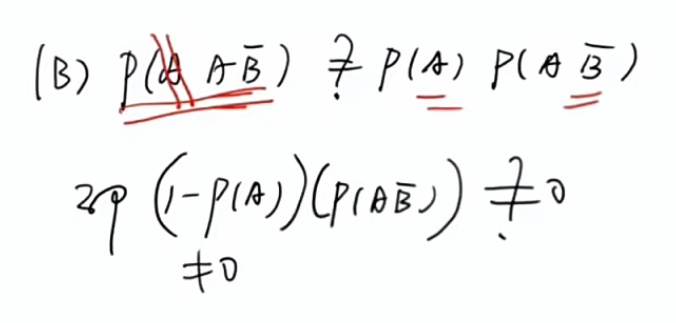 (B) P(A A\overline{B}) \stackrel{?}{=} P(A) P(A \overline{B})
即 (1-P(A))(P(A\overline{B})) \stackrel{?}{=} 0
≠0